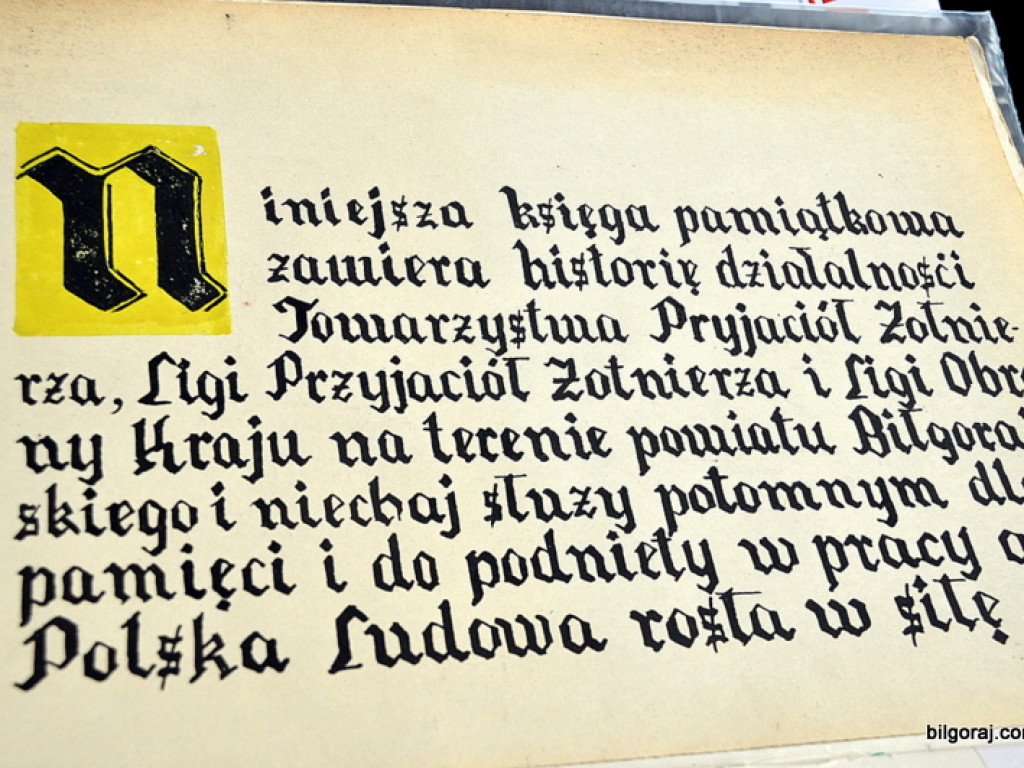 Niniejsza księga pamiątkowa
zawiera historię działalności
Towarzystwa Pryjaciół Żołnie-
rza, Ligi Przyjaciół Żołnierza i Ligi Obro
ny Kraju na terenie powiatu Biłgoraj
skiego i niechaj służy potomnym dla
pamięci i do podniety w pracy a
Polska Ludowa rosła w siłę
bilgoraj.com